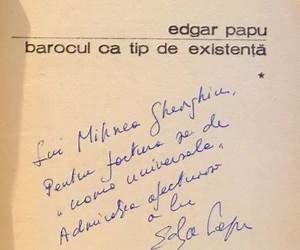 edgar papu
barocul ca tip de existență
*
Lui Mihnea Gheorghiu,
Pentru factura sa de
"uomo universale"
Admirația afectuoasă
a lui
Edgar Papu